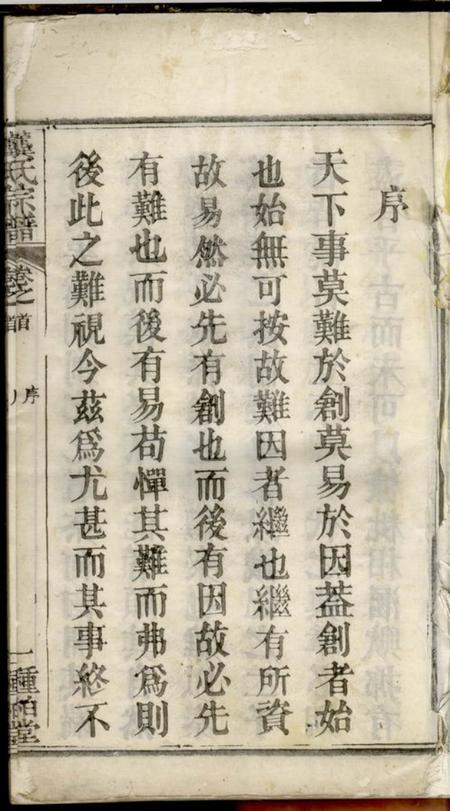 序
天下事莫難於創莫易於因蓋創者始
也始無可按故難因者繼也繼有所資
故易然必先有創也而後有因故必先
有難也而後有易苟憚其難而弗為則
後此之難視今茲為尤甚而其事終不
龔氏宗譜
卷之首
序
一
種柏堂